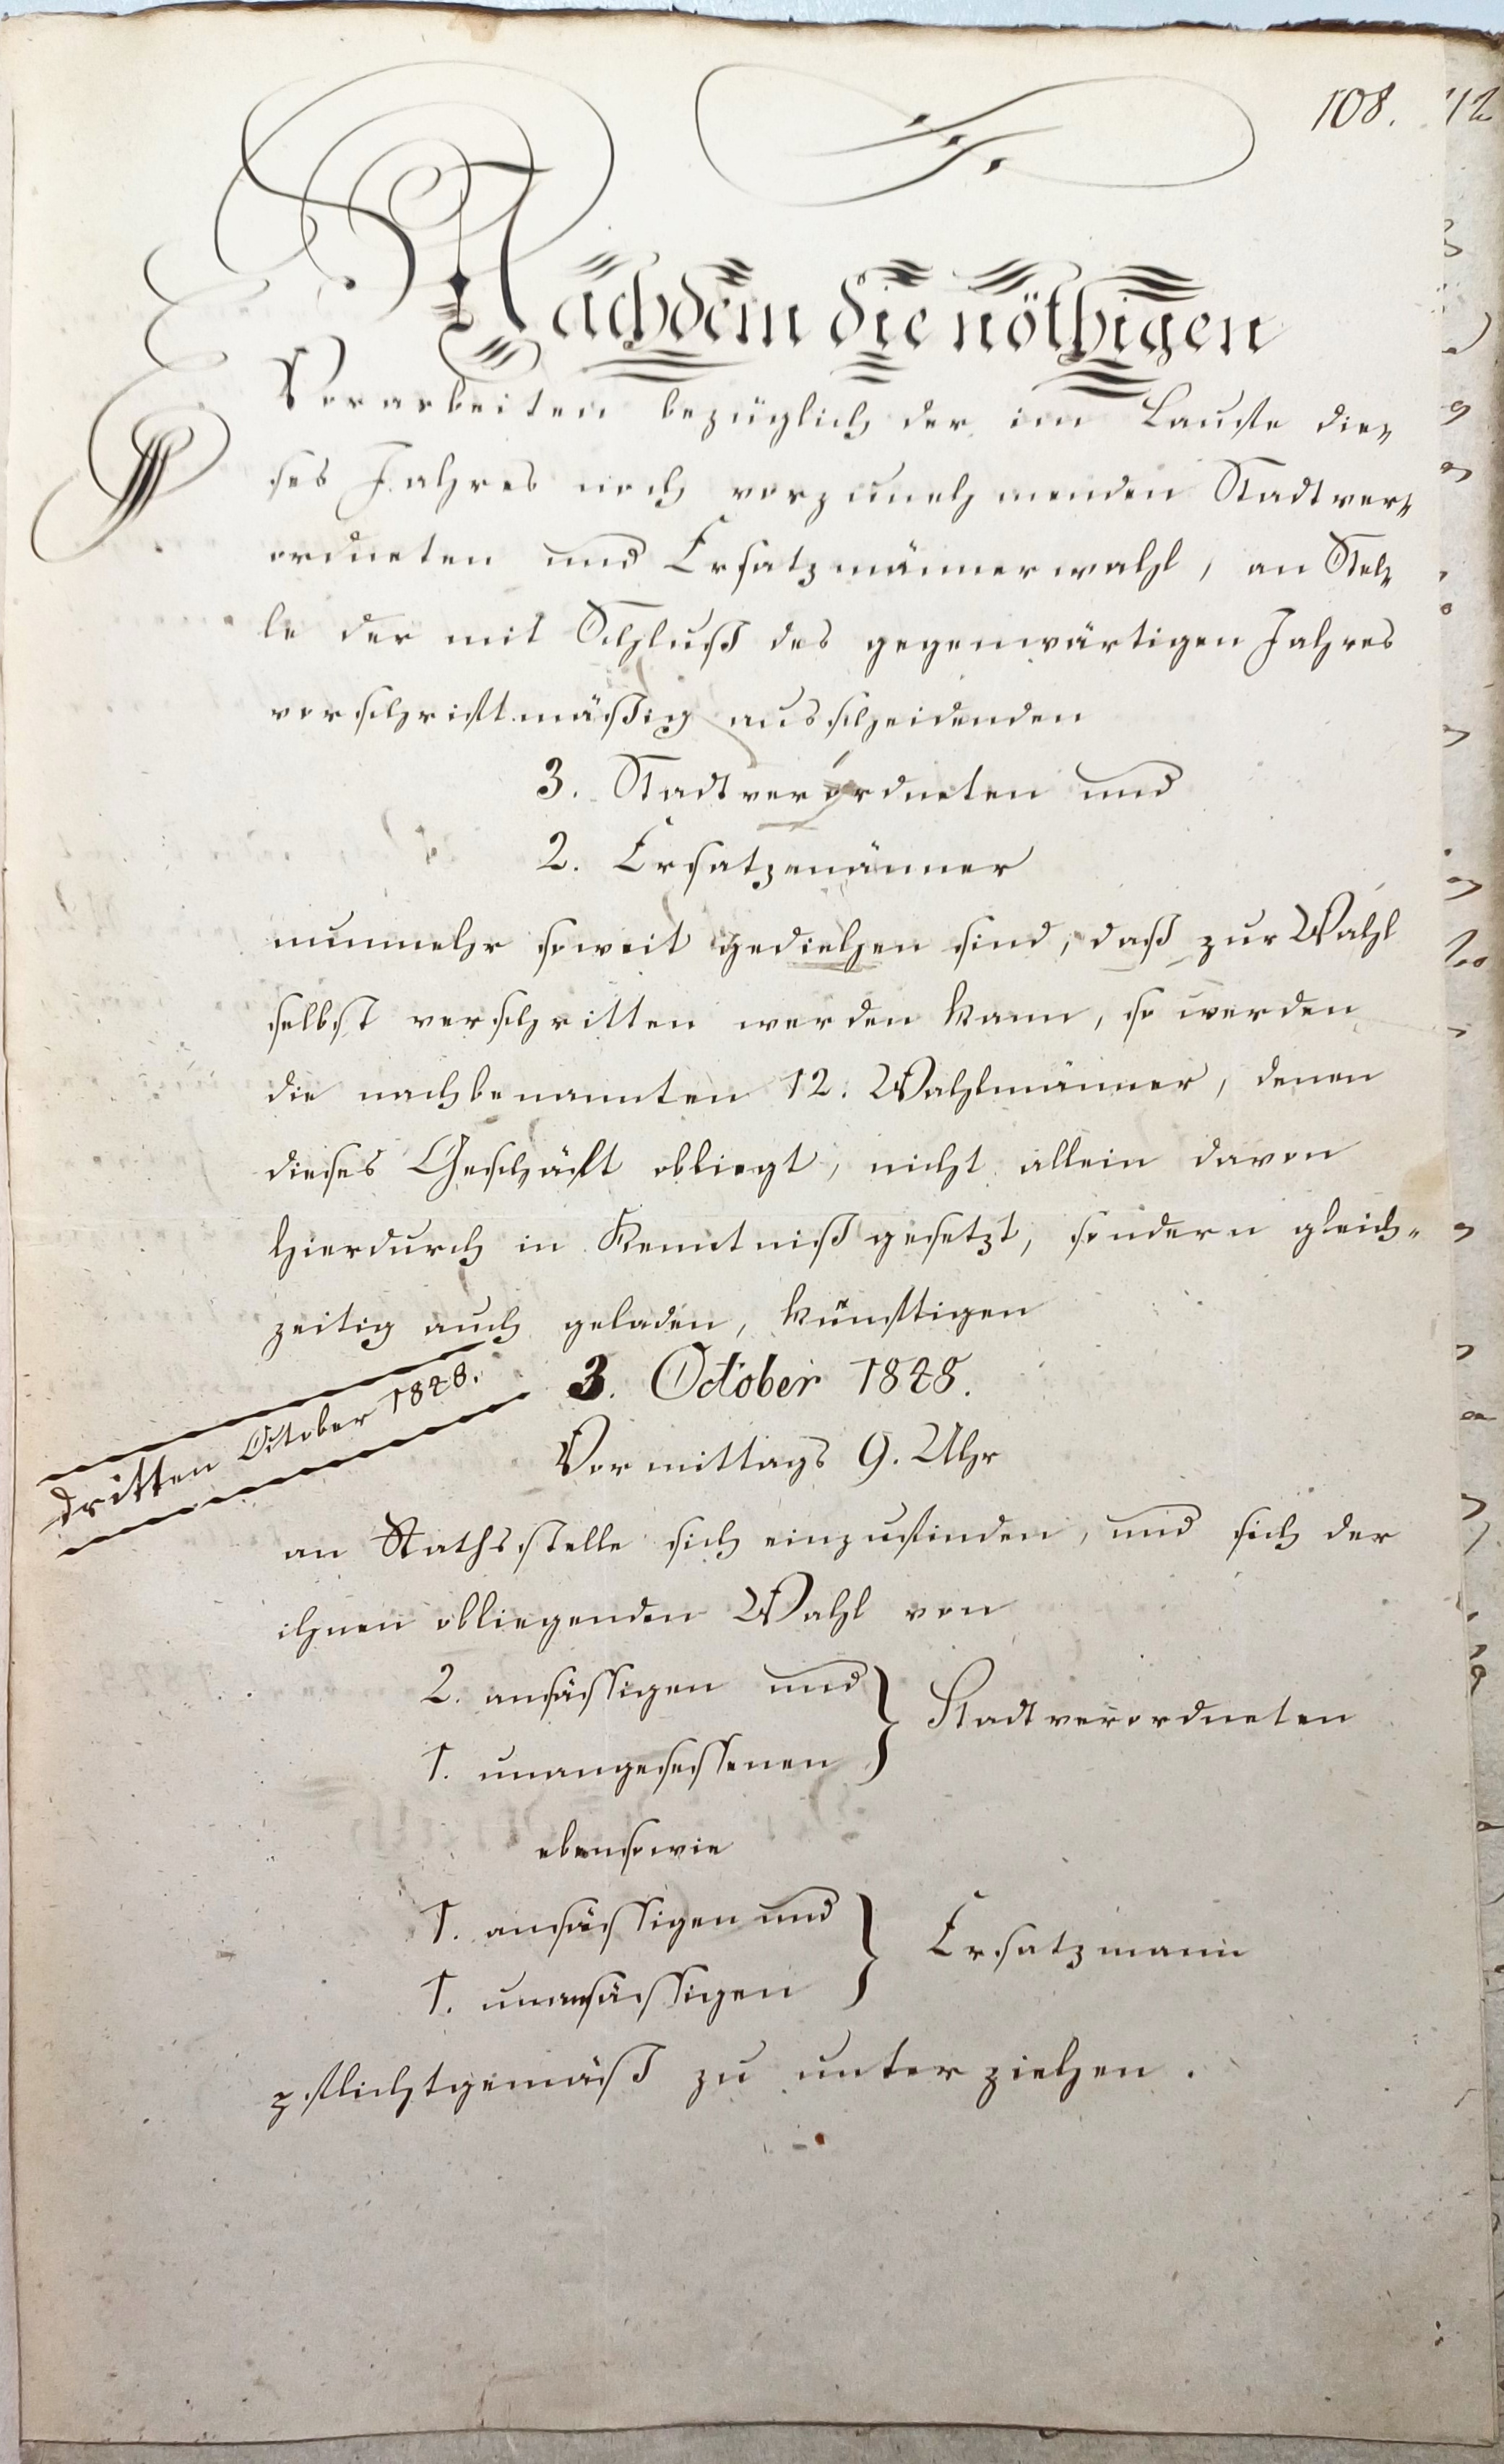 108.
Nachdem die nöthigen
Vorarbeiten bezüglich der im Laufe die-
ses Jahres noch vorzunehmenden Stadtver-
ordneten und Ersatzmännerwahl, an Stel-
le der mit Schluß des gegenwärtigen Jahres
vorschriftmäßig ausscheidenden
3. Stadtverordneten und
2. Ersatzmänner
nunmehr soweit gediehen sind, daß zur Wahl
selbst verschritten werden kann, so werden
die nachbenannten 12. Wahlmänner, denen
dieses Geschäft obliegt, nicht allein davon
hierdurch in Kenntniß gesetzt, sondern gleich-
zeitig auch geladen, künftigen
3. October 1848.
dritten October 1848.
Vormittags 9. Uhr
an Rathsstelle sich einzufinden, und sich der
ihnen obliegenden Wahl von
2. ansässigen und
1. unangesessenen } Stadtverordneten
ebensowie
1. ansässigen und
1. unansässigen } Ersatzmann
pflichtgemäß zu unterziehen.